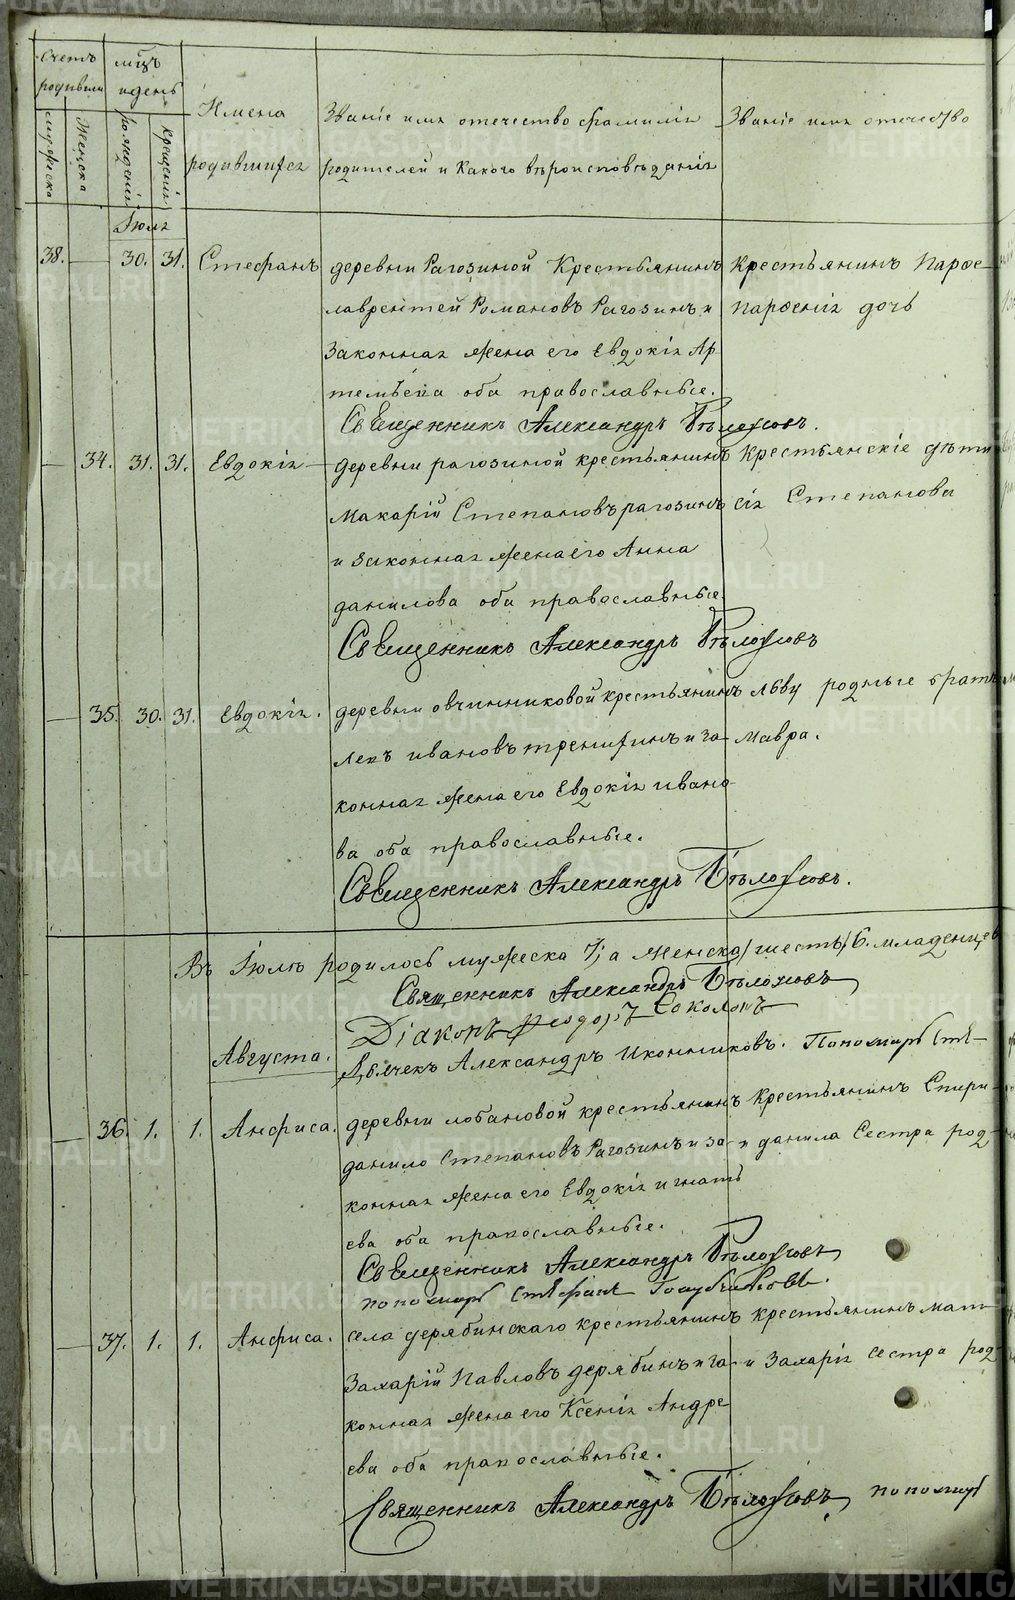 Счетъ родивши
мцъ и день
Имена родившихся
Званіе имя отечество фамиліи родителей и какого вѣроисповѣданія
Званіе имя отечество
мужеска
Женска
рожденія
крещенія
Іюля
38. — 30. 31. Стефанъ
деревни Рагозиной Крестьянинъ
лаврентей Романовъ Рагозинъ и
законная жена его Евдокія Ар
темьева оба православные.
крестьянинъ
дочь
Священникъ Александръ Бѣлоусовъ.
— 34. 31. 31. Евдокія —
деревни рагозиной крестьянинъ
Макарій Степановъ рагозинъ
и законная жена его Анна
данилова оба православные
Крестьянскіе дѣти
Степанова
Священникъ Александръ Бѣлоусовъ
— 35. 30. 31. Евдокія.
деревни овчинниковой крестьянинъ
левъ ивановъ и за
конная жена его Евдокія ивано
ва оба православные.
льву родные братъ
Мавра.
Священникъ Александръ Бѣлоусовъ.
Въ Іюлѣ родилось мужеска 7; а женска /шесть/ 6. младенцев
Священникъ Александръ Бѣлоусовъ
Діаконъ Феодоръ Соколовъ
Августа.
Дьячекъ Александръ Иконниковъ. Пономарь Сте—
— 36. 1. 1. Анфиса.
деревни лобановой крестьянинъ
данило Степановъ Рагозинъ и за
конная жена его Евдокія игнать
ева оба православные.
крестьянинъ Спири—
и данила Сестра род—
Священникъ Александръ Бѣлоусовъ
пономарь Стефанъ
— 37. 1. 1. Анфиса.
села дерябинскаго крестьянинъ
Захарій Павловъ дерябинъ и за
конная жена его Ксенія Андре
ева оба православные.
крестьянинъ мат—
и Захарія сестра род—
Священникъ Александръ Бѣлоусовъ, пономарь
METRIKI.GASO-URAL.RU